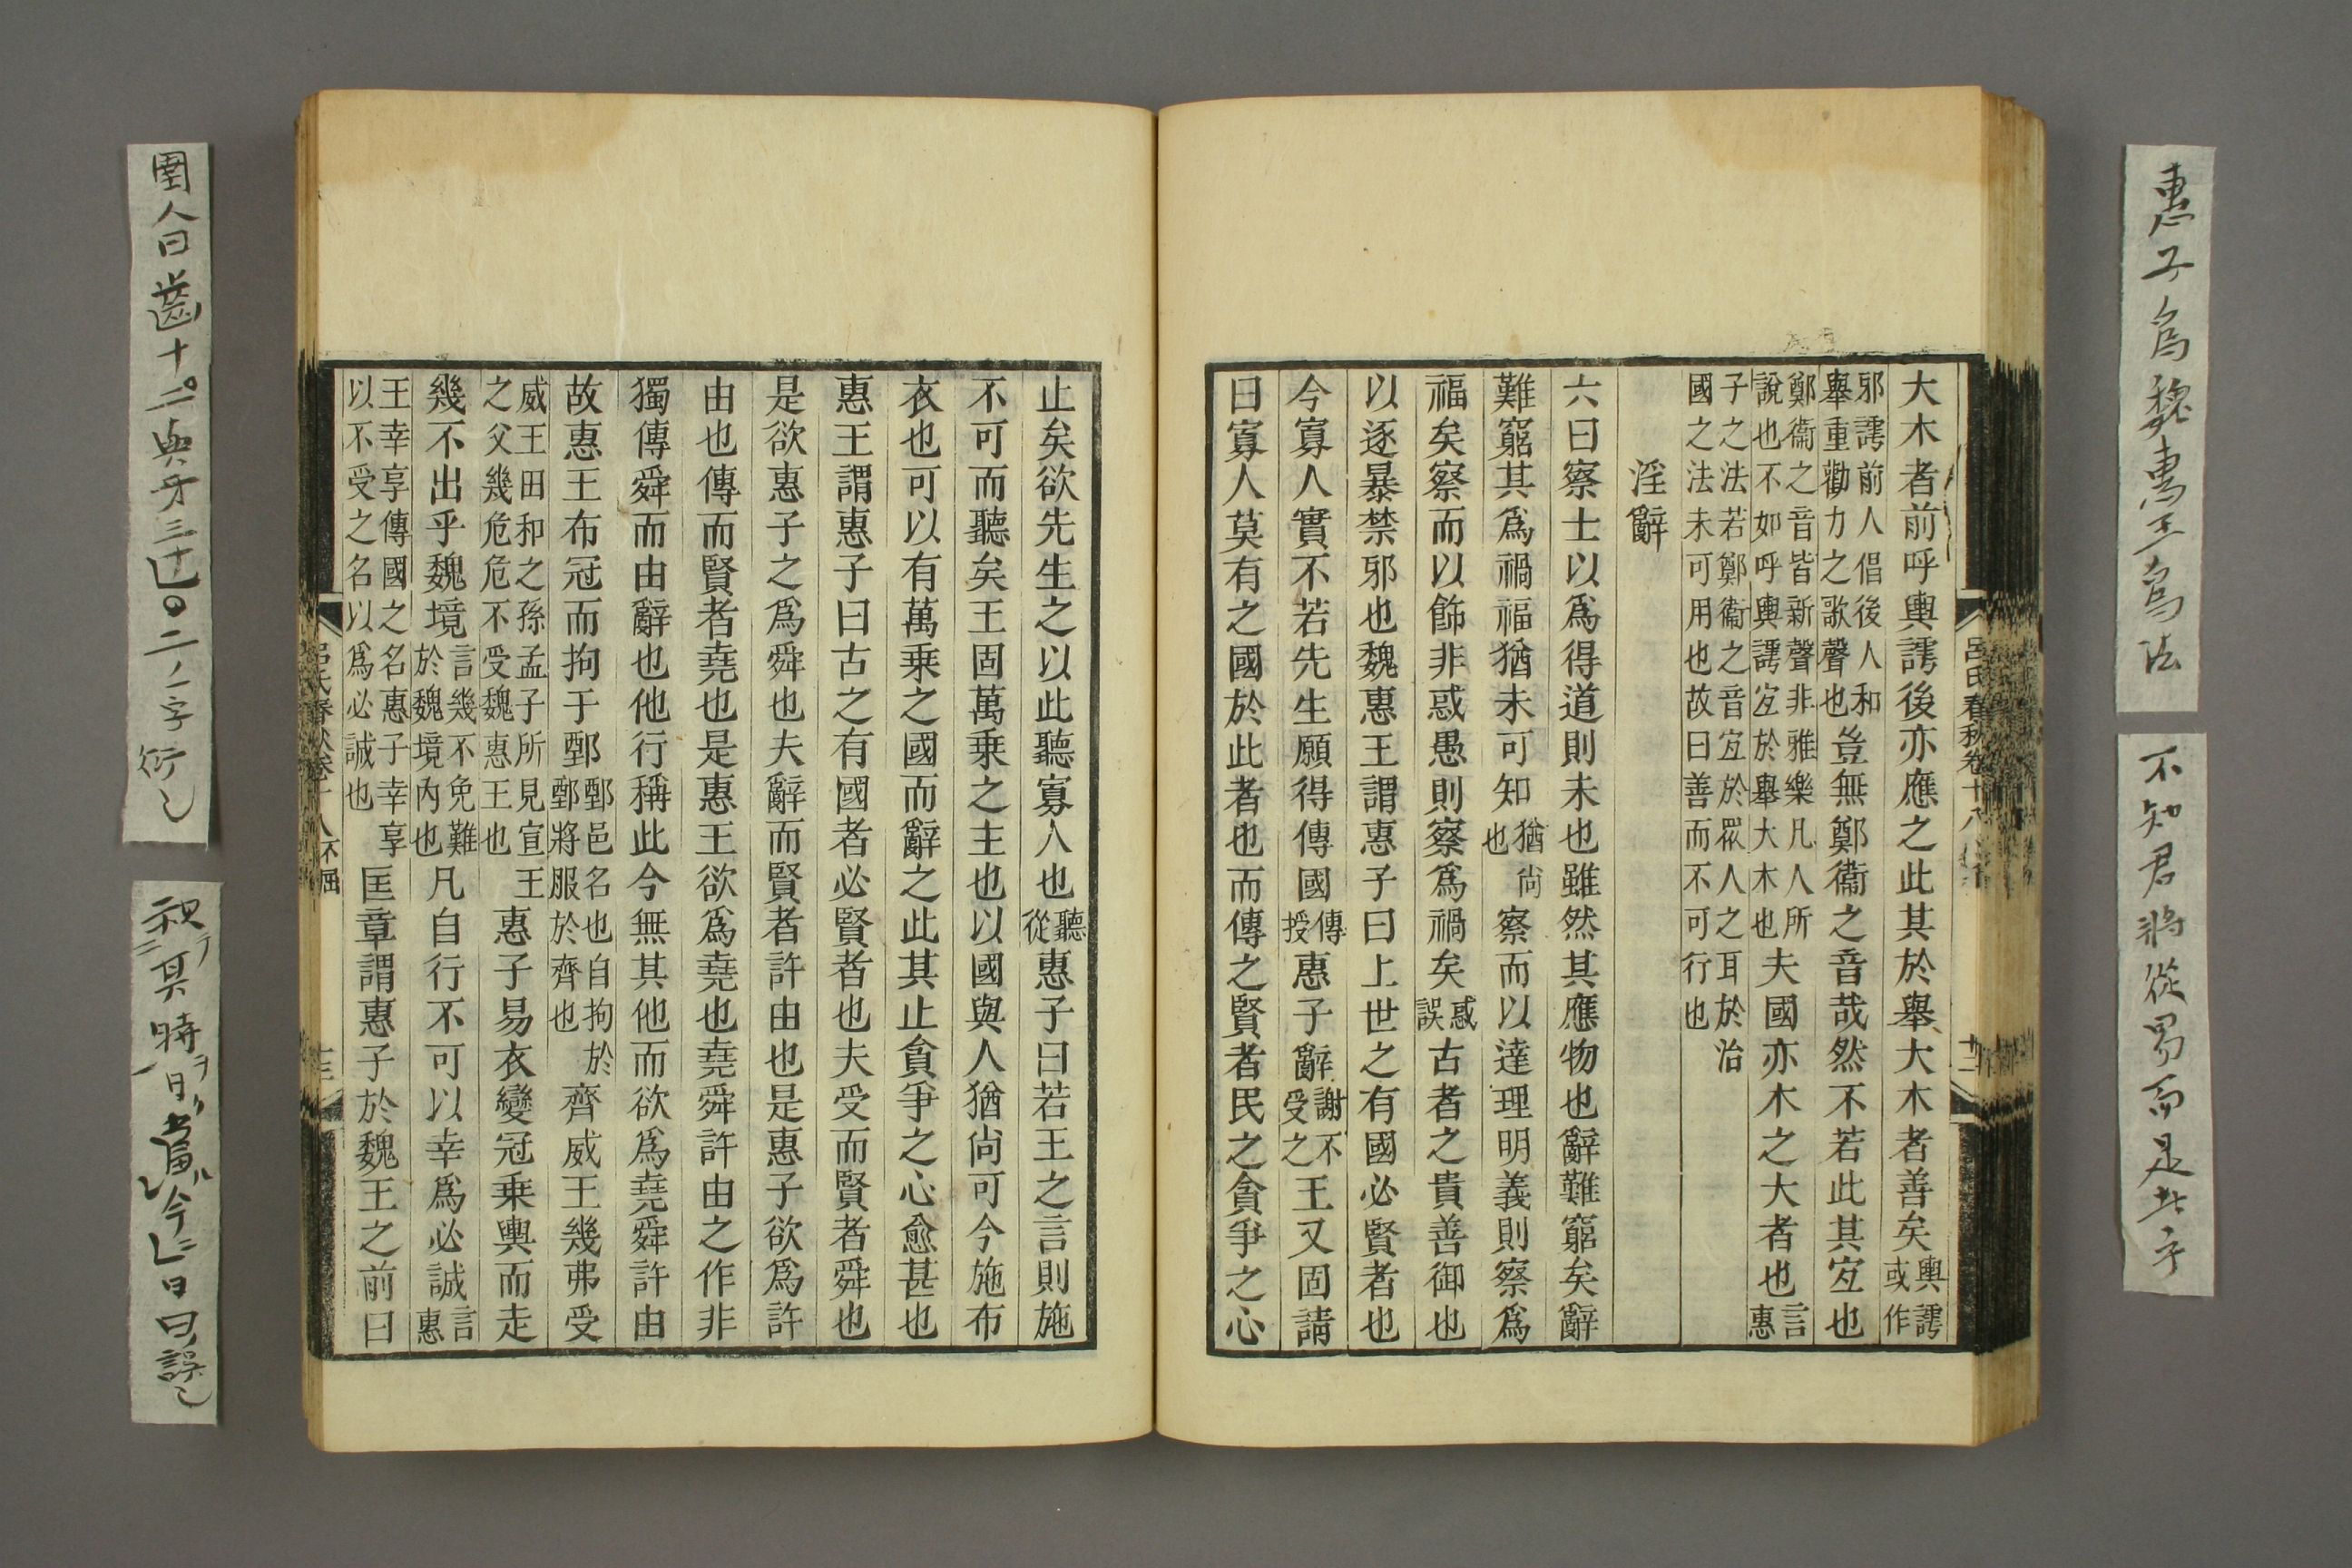 惠子爲魏惠王爲法
不知君將從易而是者乎
呂氏春秋卷十八 十二
大木者前呼輿謣後亦應之此其於舉大木者善矣輿謣或作
邪謣前人倡後人和舉重勸力之歌聲也豈無鄭衞之音哉然不若此其宜也
鄭衞之音皆新聲非雅樂凡人所說也不如呼輿謣宜於舉大木也夫國亦木之大者也言惠
子之法若鄭衞之音宜於眾人之耳於治國之法未可用也故曰善而不可行也
淫辭
六曰察士以爲得道則未也雖然其應物也辭難窮矣辭
難窮其爲禍福猶未可知猶尙也察而以達理明義則察爲
福矣察而以飾非惑愚則察爲禍矣惑誤古者之貴善御也
以逐暴禁邪也魏惠王謂惠子曰上世之有國必賢者也
今寡人實不若先生願得傳國傳授惠子辭謝不受之王又固請
曰寡人莫有之國於此者也而傳之賢者民之貪爭之心
止矣欲先生之以此聽寡人也聽從惠子曰若王之言則施
不可而聽矣王固萬乘之主也以國與人猶尙可今施布
衣也可以有萬乘之國而辭之此其止貪爭之心愈甚也
惠王謂惠子曰古之有國者必賢者也夫受而賢者舜也
是欲惠子之爲舜也夫辭而賢者許由也是惠子欲爲許
由也傳而賢者堯也是惠王欲爲堯也堯舜許由之作非
獨傳舜而由辭也他行稱此今無其他而欲爲堯舜許由
故惠王布冠而拘于鄄鄄邑名也自拘於鄄將服於齊也齊威王幾弗受
威王田和之孫孟子所見宣王之父幾危危不受魏惠王也惠子易衣變冠乘輿而走
幾不出乎魏境言幾不免難於魏境內也凡自行不可以幸爲必誠言惠
王幸享傳國之名惠子幸享以不受之名以爲必誠也匡章謂惠子於魏王之前曰
呂氏春秋卷十八 不屈 十三
圉人曰齒十二與牙三十ヒ〇二ノ字衍也
祝其時日當今ヒ日曰誤也